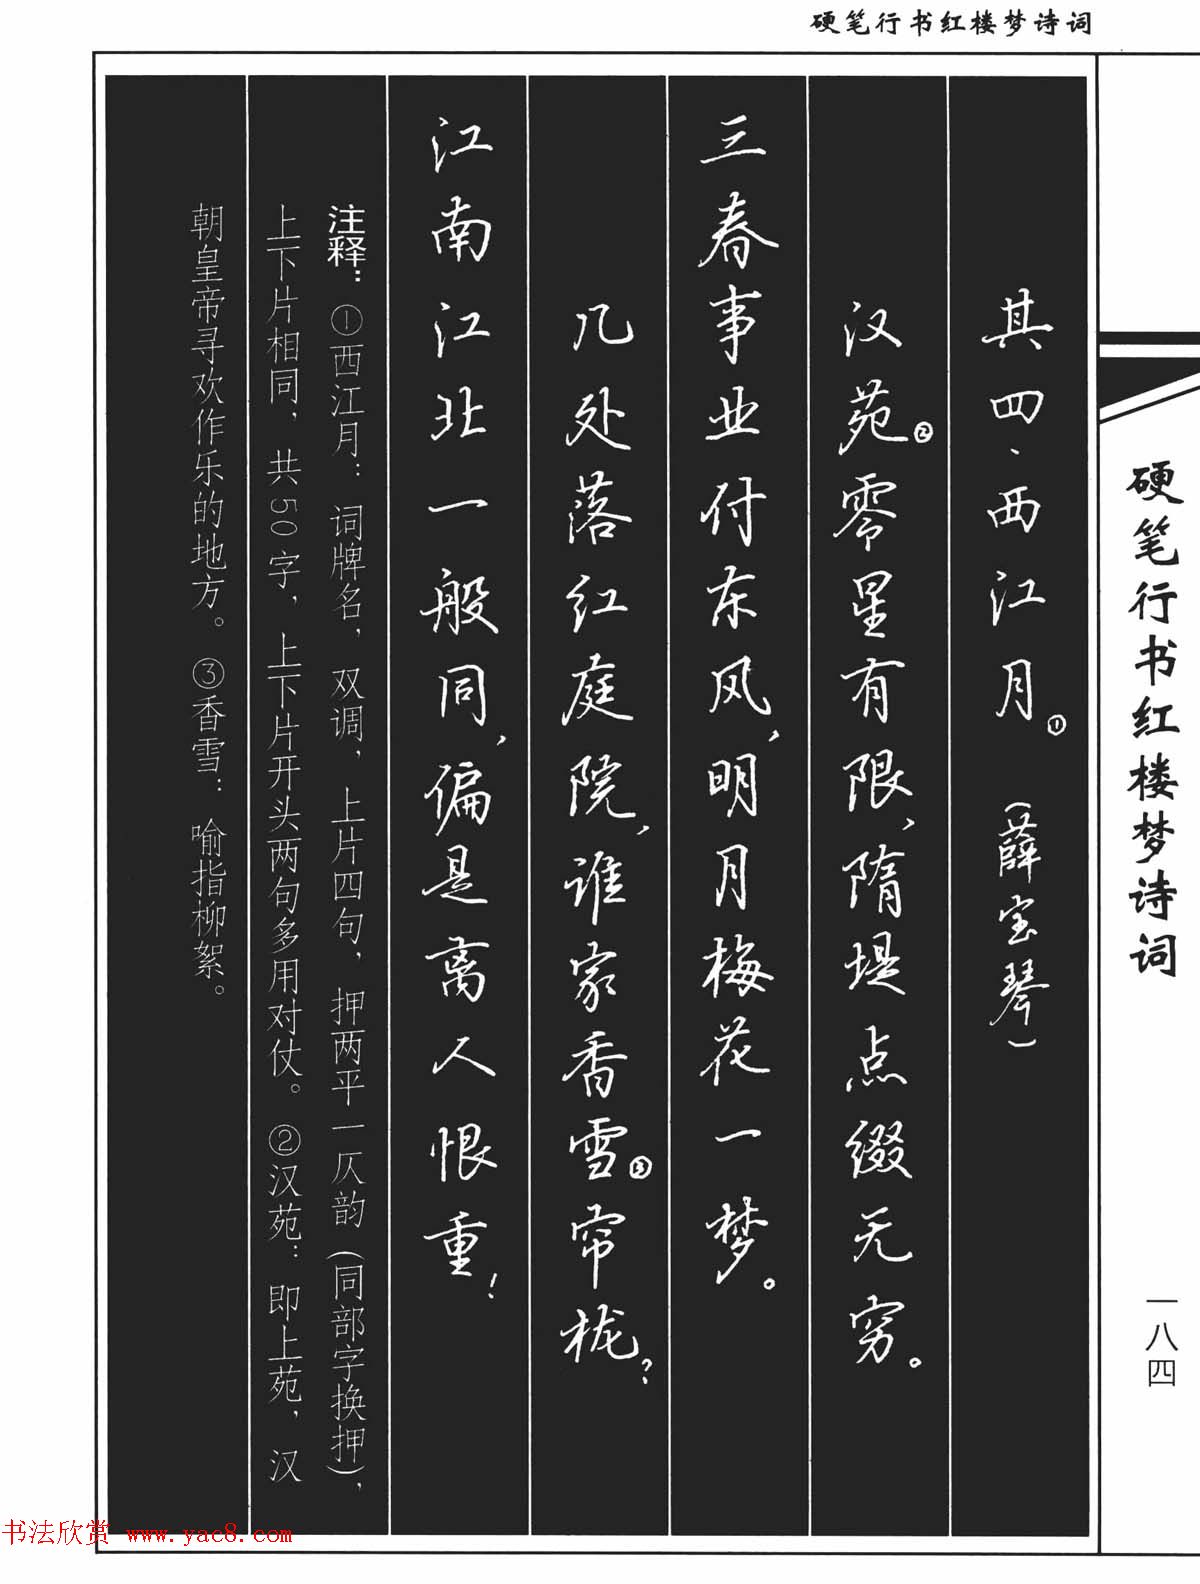 硬笔行书红楼梦诗词
硬笔行书红楼梦诗词
一八四
其四、西江月①（薛宝琴）
汉苑②零星有限，隋堤点缀无穷。
三春事业付东风，明月梅花一梦。
几处落红庭院，谁家香雪③帘栊？
江南江北一般同，偏是离人恨重！
注释：①西江月：词牌名，双调，上片四句，押两平一仄韵（同部字换押），
上下片相同，共50字，上下片开头两句多用对仗。②汉苑：即上苑，汉
朝皇帝寻欢作乐的地方。③香雪：喻指柳絮。
书法欣赏 www.yac8.com